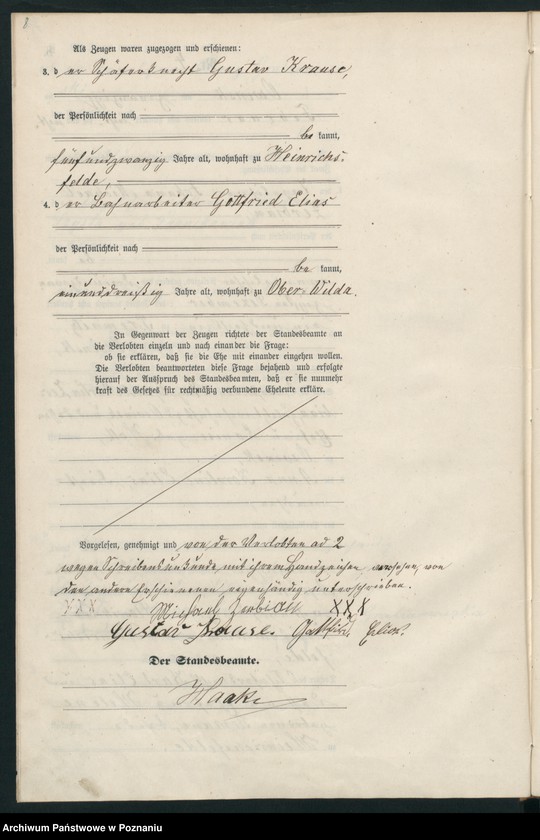 Als Zeugen waren zugezogen und erschienen:
3. der Schäferknecht Gustav Krause,
der Persönlichkeit nach
be kannt,
fünfundzwanzig Jahre alt, wohnhaft zu Heinrichs-
felde,
4. der Bahnarbeiter Gottfried Elias
der Persönlichkeit nach
be kannt,
einunddreißig Jahre alt, wohnhaft zu Ober-Wilda.
In Gegenwart der Zeugen richtete der Standesbeamte an
die Verlobten einzeln und nach einander die Frage:
ob sie erklären, daß sie die Ehe mit einander eingehen wollen.
Die Verlobten beantworteten diese Frage bejahend und erfolgte
hierauf der Ausspruch des Standesbeamten, daß er sie nunmehr
kraft des Gesetzes für rechtmäßig verbundene Eheleute erkläre.
Vorgelesen, genehmigt und von der Verlobten ad 2
wegen Schreibensunkunde mit ihrem Handzeichen versehen, von
den andere Erschienenen eigenhändig unterschrieben.
XXX
XXX
Gustav Krause. Gottfried Elias.
Der Standesbeamte.
Haake
Archiwum Państwowe w Poznaniu
szukajwarchiwach.gov.pl